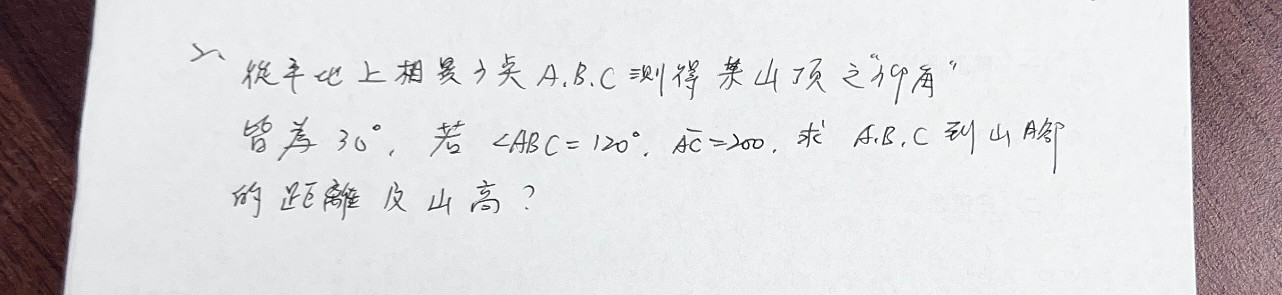 2、從平地上相異3点A.B.C測得某山頂之"仰角"
皆為30°, 若∠ABC=120°. AC=200, 求A.B.C到山腳
的距離及山高?